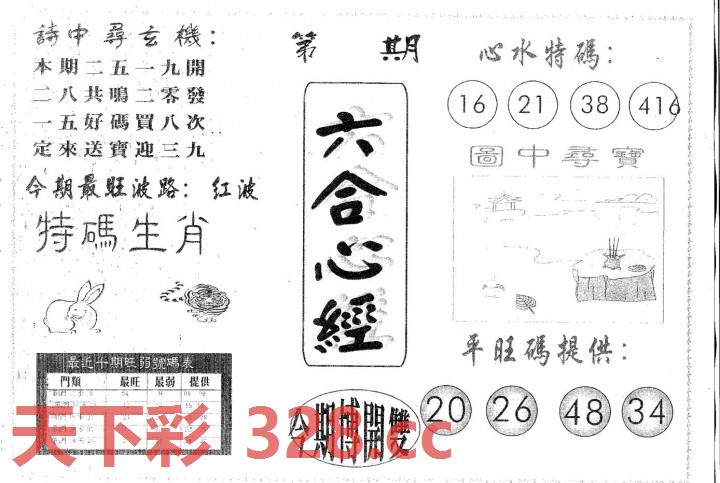 詩中尋玄機：
本期二五一九開
二八共鳴二零發
一五好碼買八次
定來送寶迎三九
今期最旺波路：红波
特碼生肖
最近十期旺弱號碼表
門類 最旺 最弱 提供
第 期
六合心經
今期博開雙
心水特碼：
16 21 38 416
圖中尋寶
平旺碼提供：
20 26 48 34
天下彩 328.cc